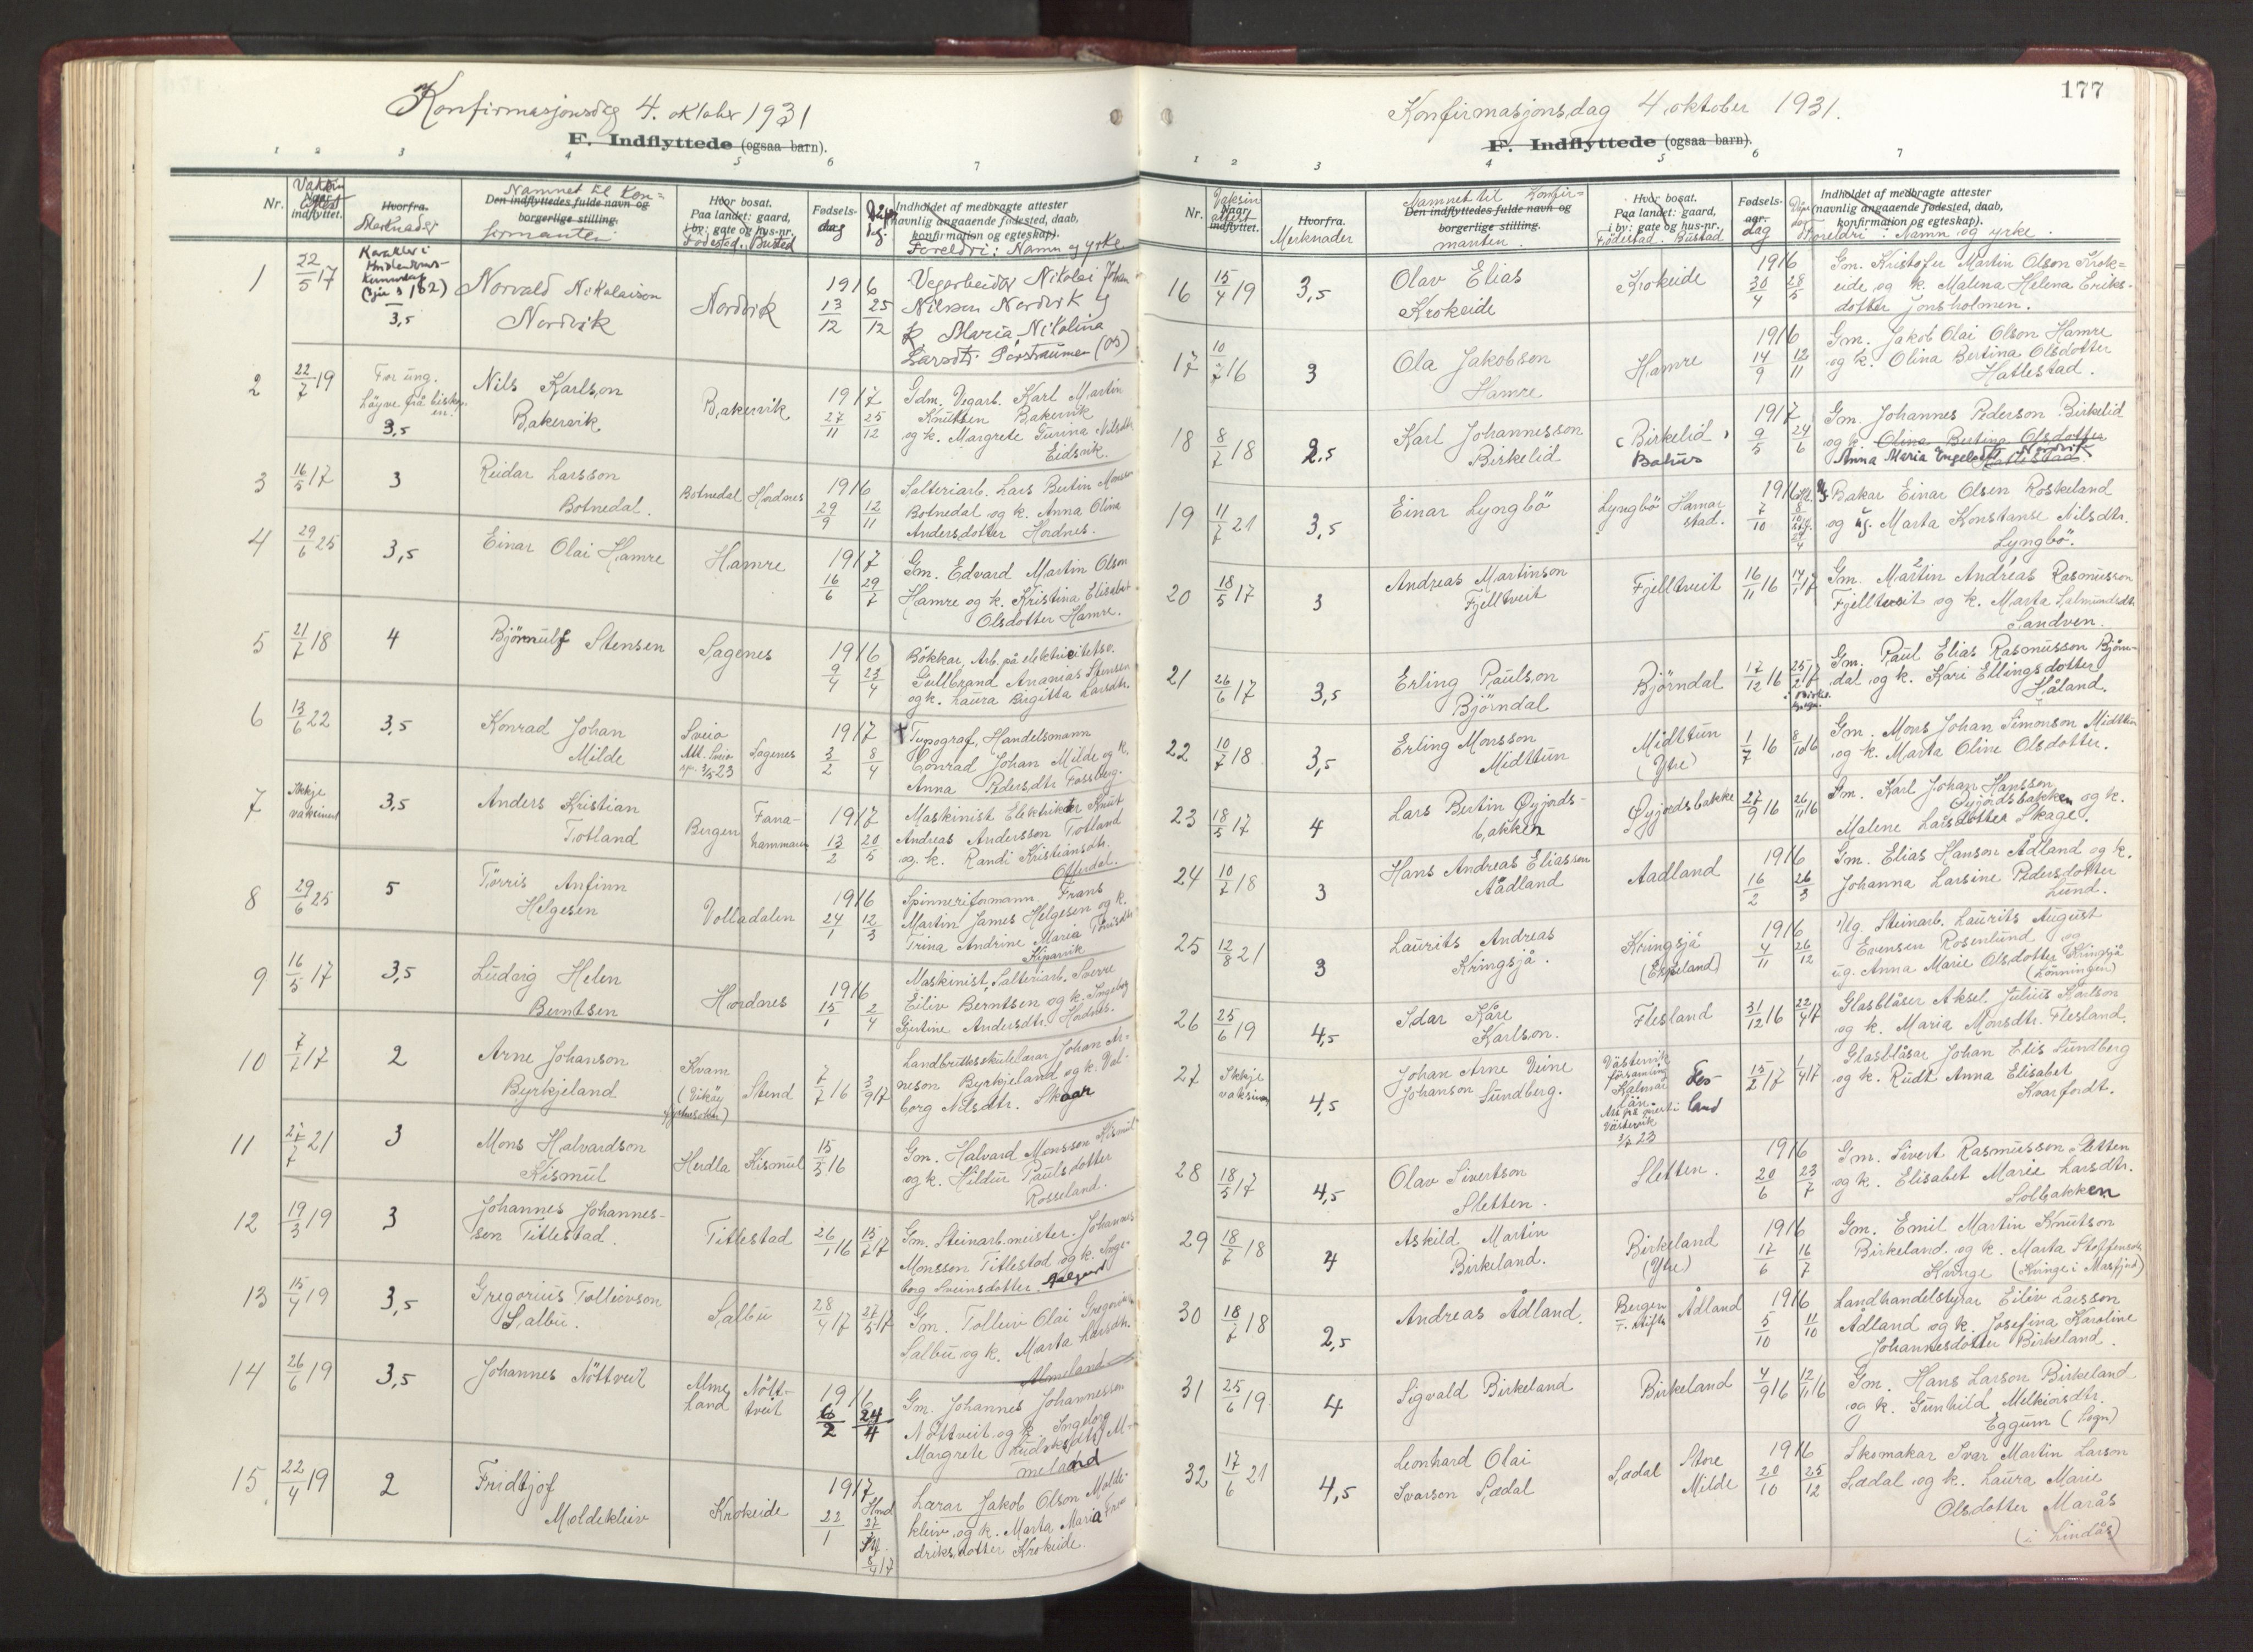 Konfirmasjonsdag 4. oktober 1931
F. Indflyttede (ogsaa barn).
1 2 3 4 5 6 7
Nr.
Vaksin attest
Naar indflyttet.
Hvorfra.
Merknader
Namnet til Kon-
Den indflyttedes fulde navn og
borgerlige stilling.
firmanten
Hvor bosat.
Paa landet: gaard,
i by: gate og hus-nr.
Fødestad. Bustad
Fødsels-
dag
Indholdet af medbragte attester
(navnlig angaaende fødested, daab,
konfirmation og egteskap).
Foreldri: Namn og yrke
1 22/5 17
Karakter i
Kristendoms-
kunnskap
(sjå s 162)
3,5
Norvald Nikolaison
Nordvik
Nordvik
1916
13/12 25/12
Vegarbeider Nikolai Johan
Nilsen Nordvik og
k. Maria Nikolina
Larsdtr. Porstraumen (Os)
2 22/7 19
For ung.
Løyve frå bisko-
en.
3,5
Nils Karlson
Bakervik
Bakervik
1917
27/11 25/12
Gdm. Vegarb. Karl Martin
Knutsen Bakervik
og k. Margrete Gurina Nilsdtr
Eidsvik.
3 16/5 17 3
Reidar Larsson
Botnedal.
Botnedal Hordnes
1916
29/9 12/11
Salteriarb. Lars Bertin Monsen
Botnedal og k. Anna Olina
Andersdotter Hordnes.
4 29/6 25 3,5
Einar Olai Hamre
Hamre
1917
16/6 29/7
Gm. Edvard Martin Olson
Hamre og k. Kristina Elisabet
Olsdotter Hamre.
5 21/7 18 4
Bjørnulf Stensen
Sagenes
1916
9/4 23/4
Bökkar, Arb. på elektricitetsv.
Gullbrand Ananias Stensen
og k. Laura Birgitta Larsdtr.
6 13/6 22 3,5
Konrad Johan
Milde
Sveio
Att. Sveio
3/5 23
Sagenes
1917
3/2 8/4
† Typograf, Handelsmann
Conrad Johan Milde og k.
Anna Pedersdtr Fossberg.
7 Ikkje
vaksinert
3,5
Anders Kristian
Totland
Bergen
Fana-
hammaren
1917
13/2 20/5
Maskinist Elektriker Knut
Andreas Andersson Totland
og k. Randi Kristiansdtr.
Otterdal.
8 29/6 25 5
Tørris Anfinn
Helgesen
Volladalen
1916
24/1 12/3
Spinneriformann Frans
Martin James Helgesen og k.
Trina Andrine Maria Tørrisdtr
Kiparvik
9 16/5 17 3,5
Ludvig Helen
Berntsen
Hordnes
1916
15/1 2/4
Maskinist, Salteriarb. Sverre
Eiliv Berntsen og k. Ingeborg
Gjertine Andersdtr. Hordnes.
10 7/7 17 2
Arne Johanson
Byrkjeland
Kvam
(Vikøy
Stend
7/7 16 3/9 17
Landbruksskulelærar Johan Ar-
neson Byrkjeland og k. Val-
borg Nilsdtr. Skaar
11 27/7 21 3
Mons Halvardson
Kismul
Herdla Kismul
15/5 16
Gm. Halvard Monsson Kismul
og k. Hildur Paulsdotter
Rosseland.
12 19/3 19 3
Johannes Johannes-
sen Titlestad.
Titlestad
26/1 16 15/7 17
Gm. Steinarb.meister. Johannes
Monsson Titlestad og k. Inge-
borg Sveinsdotter
13 15/4 19 3,5
Gregorius Tolleivson
Salbu.
Salbu
28/4 17 27/5 17
Gm. Tolleiv Olai Gregorius
Salbu og k. Marta Larsdtr.
Almeland
14 26/6 19 3,5
Johannes Nöttveit
Alme
land
Nött-
tveit
1916
6/2 24/4
Gm. Johannes Johannesson
Nöttveit og k. Ingeborg
Margrete Ludviksdtr Al-
meland
15 22/4 19 2
Fridtjof
Moldekleiv
Krokeide
1917
22/1
Lærar Jakob Olson Molde-
kleiv og k. Marta Maria Fre-
driksdotter Krokeide.
177
Konfirmasjonsdag 4 oktober 1931.
F. Indflyttede (ogsaa barn).
1 2 3 4 5 6 7
Nr.
Vaksin
attest
Naar indflyttet.
Hvorfra.
Merknader
Namnet til Konfir-
Den indflyttedes fulde navn og
borgerlige stilling.
manten.
Hvor bosat.
Paa landet: gaard,
i by: gate og hus-nr.
Fødestad Bustad
Fødsels-
aar.
dag
Indholdet af medbragte attester
(navnlig angaaende fødested, daab,
konfirmation og egteskap).
Foreldri: Namn og yrke.
16 15/4 19 3,5
Olav Elias
Krokeide
Krokeide
1916
30/4 28/5
Gm. Kristofer Martin Olson Krok-
eide og k. Malena Helena Eriks-
dotter Jonsholmen.
17 10/7 16 3
Ola Jakobson
Hamre
Hamre
1916
14/9 12/11
Gm. Jakob Olai Olson Hamre
og k. Olina Bertina Olsdotter
Hatlestad.
18 8/7 18 2,5
Karl Johannesson
Birkelid
Birkelid
Bahus
1917
9/5 24/6
Gm. Johannes Pederson Birkelid
og k. Olina Bertina Olsdotter
Anna Maria Engelsdtr Nordvik
Hatlestad.
19 11/7 21 3,5
Einar Lyngbö
Lyngbö Hamar
stad.
1916
7/10
Ug. Bakar Einar Olsen Roskeland
og ug. Marta Konstanse Nilsdtr.
Lyngbö.
20 18/5 17 3
Andreas Martinson
Fjelltveit
Fjelltveit
16/11 16 14/1 17
Gm. Martin Andreas Rasmusson
Fjelltveit og k. Marta Salmundsdtr.
Sandven.
21 26/6 17 3,5
Erling Paulson
Bjørndal
Bjørndal
17/12 16 25/2 17
Gm. Paul Elias Rasmusson Bjørn-
dal og k. Kari Ellingsdotter
Håland.
22 10/7 18 3,5
Erling Monsson
Midttun
Midttun
(Ytre)
1/7 16 8/10 16
Gm. Mons Johan Simonson Midttun
og k. Marta Oline Olsdotter.
23 18/5 17 4
Lars Bertin Øyjords-
bakken
Øyjordsbakke
27/9 16 26/11 16
Gm. Karl Johan Hansson
Øyjordsbakken og k.
Malene Larsdotter Skage.
24 10/7 18 3
Hans Andreas Eliasson
Aadland
Aadland
1916
16/2 26/3
Gm. Elias Hanson Ådland og k.
Johanna Larsine Pedersdotter
Lund.
25 12/8 21 3
Laurits Andreas
Kringsjå.
Kringsjå
(Espeland)
1916
4/11 26/12
Ug. Steinarb. Laurits August
Evensen Rosenlund og
ug. Anna Marie Olsdotter Kringsjå
(Lönningen)
26 25/6 19 4,5
Idar Kåre
Karlson.
Flesland
31/12 16 22/4 17
Glasblåser Aksel Julius Karlson
og k. Maria Monsdtr. Flesland.
27 Ikkje
vaksinert
4,5
Johan Arne Veine
Johanson Sundberg.
Västervik
församling
Kalmar
län.
Västervik
3/7 23
Fles-
land
15/2 17 1/4 17
Glasblåsar Johan Elis Sundberg
og k. Rudt Anna Elisabet
Kvarfordt.
28 18/5 17 4,5
Olav Sivertson
Sletten.
Sletten.
1916
20/6 23/7
Gm. Sivert Rasmusson Sletten
og k. Elisabet Marie Larsdtr.
Solbakken
29 18/7 18 4
Askild Martin
Birkeland.
Birkeland
(Ytre)
1916
17/6 16/7
Gm. Emil Martin Knutson
Birkeland og k. Marta Stoffensdtr
Kvinge (Kvinge i Masfjord)
30 18/7 18 2,5
Andreas Ådland.
Bergen
F. stift.
Ådland
1916
5/10 11/10
Landhandelstyrar Eiliv Larsson
Ådland og k. Josefina Karoline
Johannesdotter Birkeland.
31 25/6 19 4
Sigvald Birkeland
Birkeland
4/9 16 12/11 16
Gm. Hans Larson Birkeland
og k. Gunhild Melkiorsdtr.
Eggum (Sogn)
32 17/6 21 4,5
Leonhard Olai
Ivarson Sædal
Sædal
Store
Milde
1916
20/10 25/12
Skomakar Ivar Martin Larson
Sædal og k. Laura Marie
Olsdotter Marås
(i Lindås)